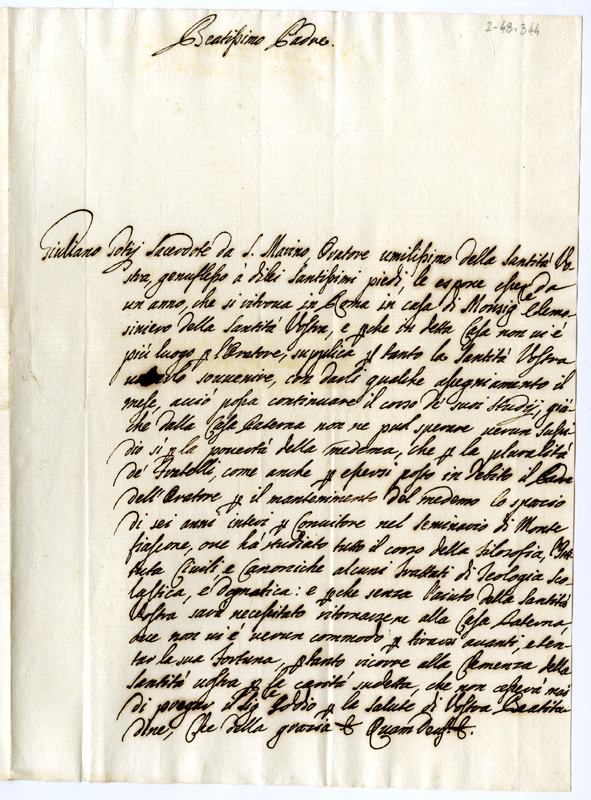 2-48-344
Beatissimo Padre.
Giuliano Sacerdote da S. Marino, Oratore umilissimo della Santità Vo=
stra, genuflesso à di lei Santissimi piedi, le espone esser da
un anno, che si ritrova in Roma in casa di Monsig.e Elemo=
siniero della Santità Vostra, e p che in detta Casa non vi é
più luogo p l'Oratore, supplica p tanto la Santità Vostra
souvenire, con darli qualche assegniamento il
mese, acciò possa continuare il corso de' suoi studij, già=
che dalla Casa Paterna non ne può sperare verun sussi=
dio sì p la povertà della medema, che p la pluralità
de' Fratelli, come anche p essersi posto in debito il Padre
dell'Oratore p il mantenimento del medemo lo spazio
di sei anni intieri p Convitore nel Seminario di Monte
fiascone, ove hà studiato tutto il corso della filosofia,
tuta Civili e Canoniche alcuni trattati di Teologia Sco=
lastica, e Dogmatica: e p che senza l'aiuto della Santità
Vostra sarà necessitato ritornarsene alla Casa Paterna,
ove non vi é verun commodo p tirarsi avanti, e ten=
tar la sua Fortuna, p tanto ricorre alla Clemenza della
Santità Vostra p la carità sudetta, che non cesserà mai
di pregar il Sig.e Iddio p la salute di Vostra Beatitu=
dine, Che della grazia &. Quam Deus &.